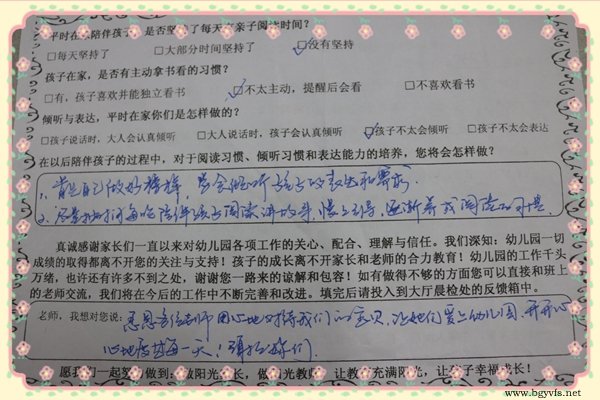 平时在家陪伴孩子，是否坚持了每天有亲子阅读时间？
□每天坚持了 □大部分时间坚持了 ☑没有坚持
孩子在家，是否有主动拿书看的习惯？
□有，孩子喜欢并能独立看书 ☑不太主动，提醒后会看 □不喜欢看书
倾听与表达，平时在家你们是怎样做的？
□孩子说话时，大人会认真倾听 □大人说话时，孩子会认真倾听 ☑孩子不太会倾听 □孩子不太会表达
在以后陪伴孩子的过程中，对于阅读习惯、倾听习惯和表达能力的培养，您将会怎样做？
1、首先自己做好榜样，学会倾听孩子的表达和需求
2、尽量抽时间每晚陪伴孩子阅读讲故事，慢慢引导，逐渐养成阅读的习惯.
真诚感谢家长们一直以来对幼儿园各项工作的关心、配合、理解与信任。我们深知：幼儿园一切
成绩的取得都离不开您的关注与支持！孩子的成长离不开家长和老师的合力教育！幼儿园的工作千头
万绪，也许还有许多不到之处，谢谢您一路来的谅解和包容！如有做得不够的方面您可以直接和班上
的老师交流，我们将在今后的工作中不断完善和改进。填完后请投入到大厅晨检处的反馈箱中。
老师，我想对您说： 老师用心地对待我们的宝贝，让她们爱上幼儿园，开开心
心地度过每一天！
愿我们一起努力做到：做阳光家长，做阳光教师，让教室充满阳光，让孩子幸福成长！
www.bgyvfs.net